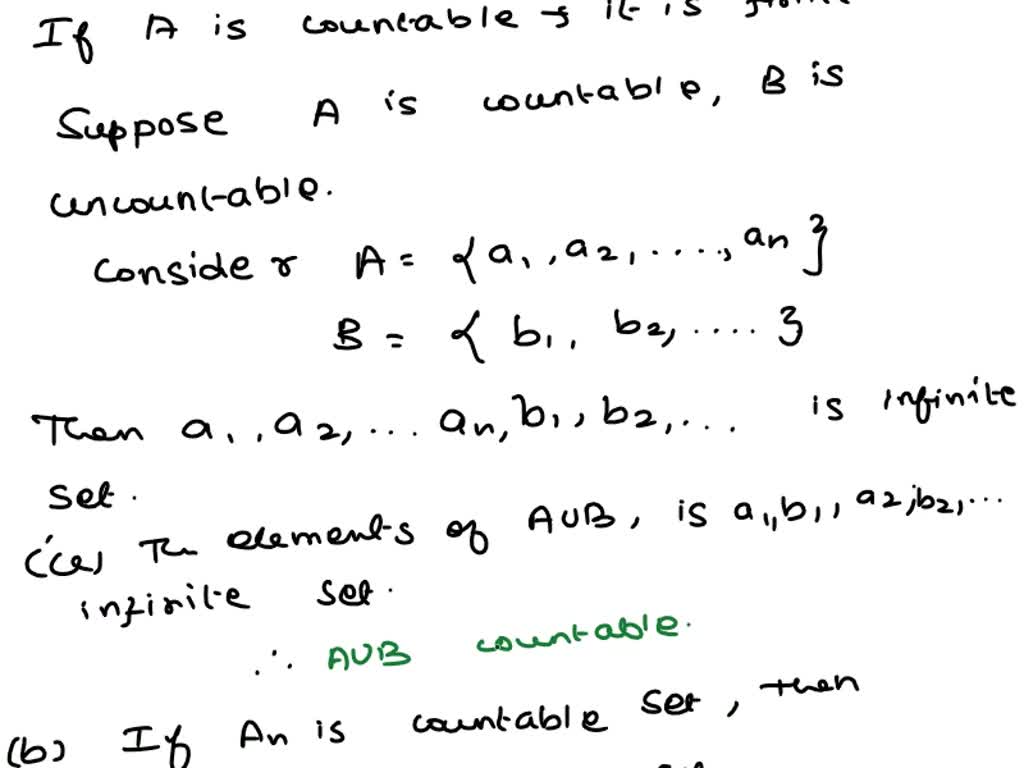 If A is countable it is
Suppose A is countable, B is
uncountable.
Consider A = {a1, a2, ...., an}
B = {b1, b2, ....}
Then a1, a2, ... an, b1, b2, ... is infinite
set.
(ie) The elements of AUB, is a1, b1, a2, b2, ...
infinite set.
∴ AUB countable.
(b) If An is countable set, then